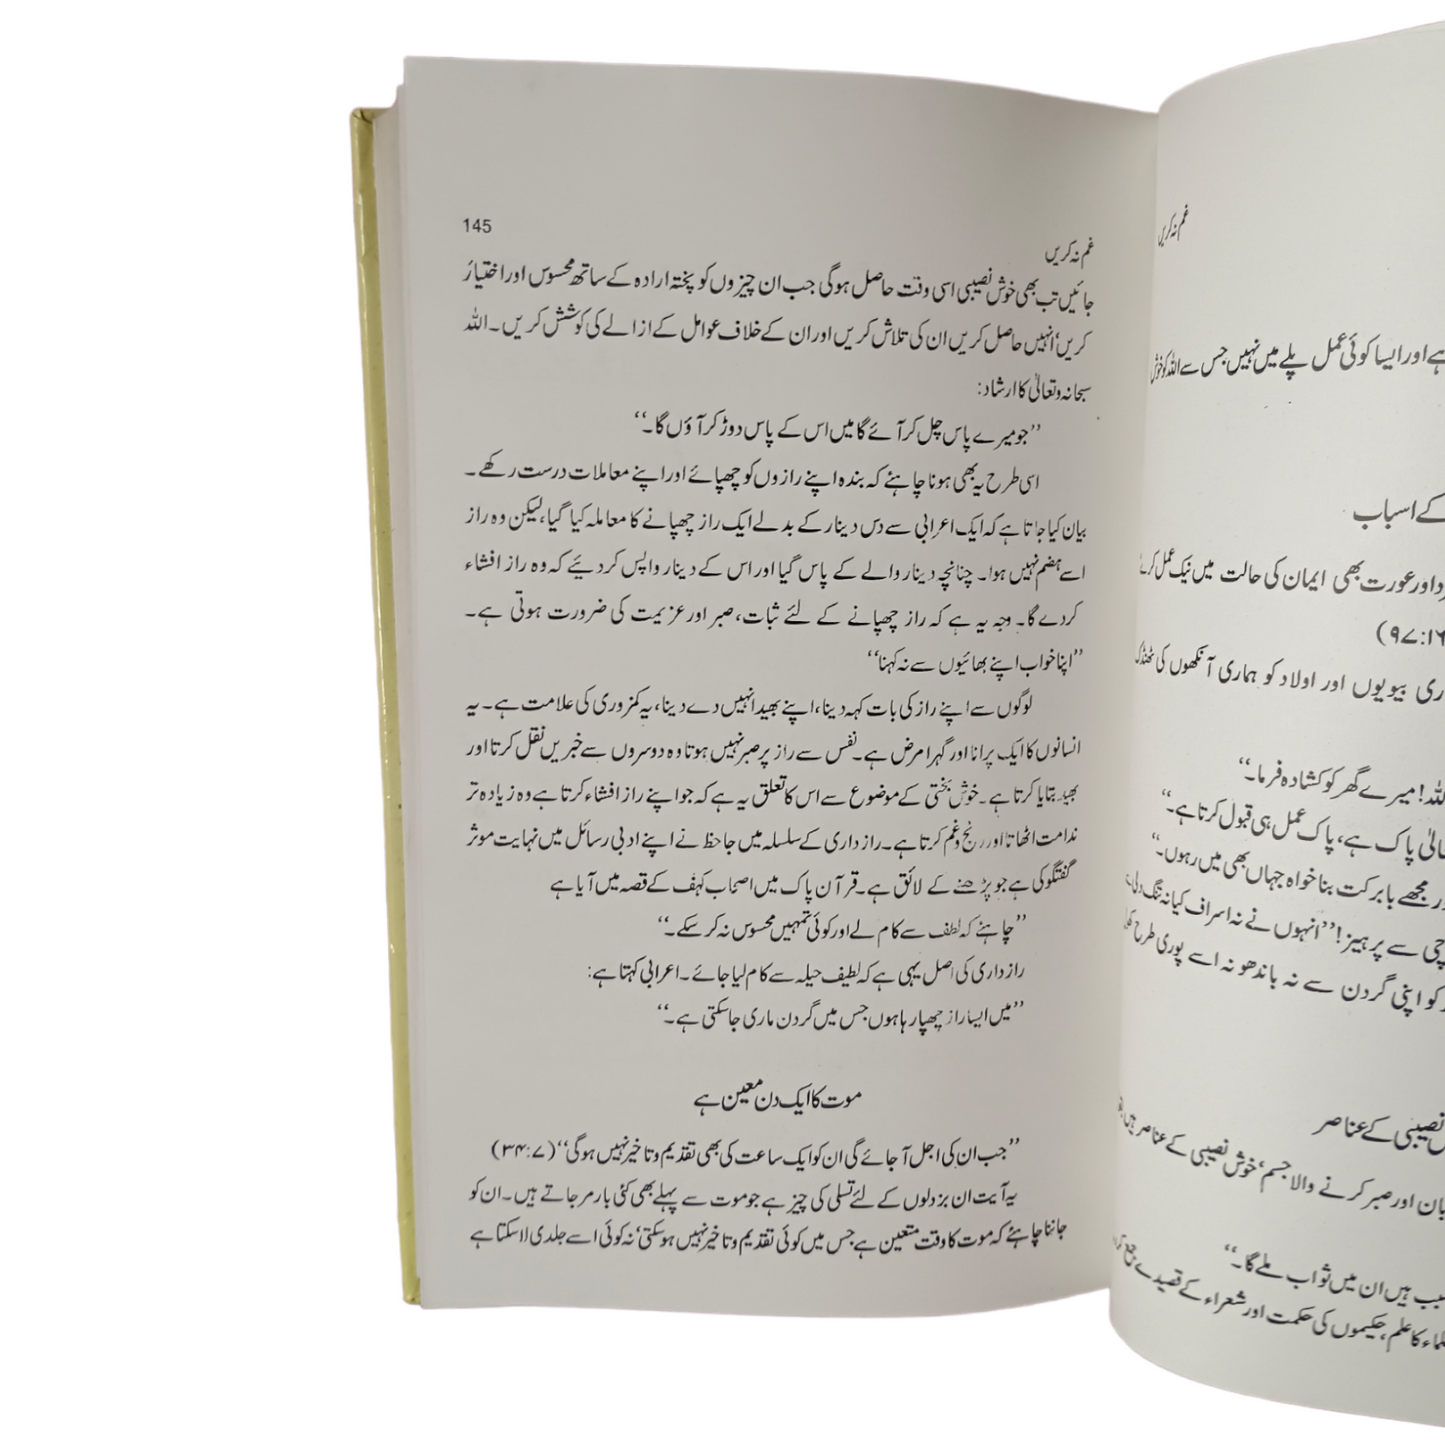 145
غم نہ کریں
جائیں تب بھی خوش نصیبی اسی وقت حاصل ہوگی جب ان چیزوں کو پختہ ارادہ کے ساتھ محسوس اور اختیار
کریں' انہیں حاصل کریں ان کی تلاش کریں اور ان کے خلاف عوامل کے ازالے کی کوشش کریں۔ اللہ
سبحانہ وتعالیٰ کا ارشاد:
''جو میرے پاس چل کر آئے گا میں اس کے پاس دوڑ کر آؤں گا۔''
اسی طرح یہ بھی ہونا چاہئے کہ بندہ اپنے رازوں کو چھپائے اور اپنے معاملات درست رکھے۔
بیان کیا جاتا ہے کہ ایک اعرابی سے دس دینار کے بدلے ایک راز چھپانے کا معاملہ کیا گیا، لیکن وہ راز
اسے ہضم نہیں ہوا۔ چنانچہ دینار والے کے پاس گیا اور اس کے دینار واپس کر دیئے کہ وہ راز افشاء
کر دے گا۔ وجہ یہ ہے کہ راز چھپانے کے لئے ثبات، صبر اور عزیمت کی ضرورت ہوتی ہے۔
''اپنا خواب اپنے بھائیوں سے نہ کہنا''
لوگوں سے اپنے راز کی بات کہہ دینا، اپنے بھید انہیں دے دینا، یہ کمزوری کی علامت ہے۔ یہ
انسانوں کا ایک پرانا اور گہرا مرض ہے۔ نفس سے راز پر صبر نہیں ہوتا وہ دوسروں سے خبریں نقل کرتا اور
بھید بتایا کرتا ہے۔ خوش بختی کے موضوع سے اس کا تعلق یہ ہے کہ جو اپنے راز افشاء کرتا ہے وہ زیادہ تر
ندامت اٹھاتا اور رنج وغم کرتا ہے۔ راز داری کے سلسلہ میں جاحظ نے اپنے ادبی رسائل میں نہایت موثر
گفتگو کی ہے جو پڑھنے کے لائق ہے۔ قرآن پاک میں اصحاب کہف کے قصہ میں آیا ہے
''چاہئے کہ لطف سے کام لے اور کوئی تمہیں محسوس نہ کر سکے۔''
راز داری کی اصل یہی ہے کہ لطیف حیلہ سے کام لیا جائے۔ اعرابی کہتا ہے:
''میں ایسا راز چھپا رہا ہوں جس میں گردن ماری جا سکتی ہے۔''
موت کا ایک دن معین ہے
''جب ان کی اجل آ جائے گی ان کو ایک ساعت کی بھی تقدیم و تاخیر نہیں ہوگی'' (۳۴:۷)
یہ آیت ان بزدلوں کے لئے تسلی کی چیز ہے جو موت سے پہلے بھی کئی بار مر جاتے ہیں۔ ان کو
جاننا چاہئے کہ موت کا وقت متعین ہے جس میں کوئی تقدیم و تاخیر نہیں ہو سکتی' نہ کوئی اسے جلدی لا سکتا ہے
غم نہ کریں
ہے اور ایسا کوئی عمل پلے میں نہیں جس سے اللہ کو خوش
کے اسباب
اور عورت بھی ایمان کی حالت میں نیک عمل کرے
(۹۷:۱۶
ری بیویوں اور اولاد کو ہماری آنکھوں کی ٹھنڈک
للہ! میرے گھر کو کشادہ فرما۔''
پاک ہے، پاک عمل ہی قبول کرتا ہے۔''
ر مجھے بابرکت بنا خواہ جہاں بھی میں رہوں۔''
چی سے پرہیز! ''انہوں نے نہ اسراف کیا نہ تنگ دلی
کو اپنی گردن سے نہ باندھو نہ اسے پوری طرح
نصیبی کے عناصر
اور صبر کرنے والا جسم' خوش نصیبی کے عناصر ہیں
ہیں ان میں ثواب ملے گا۔''
کا علم، حکیموں کی حکمت اور شعراء کے قصیدے جمع